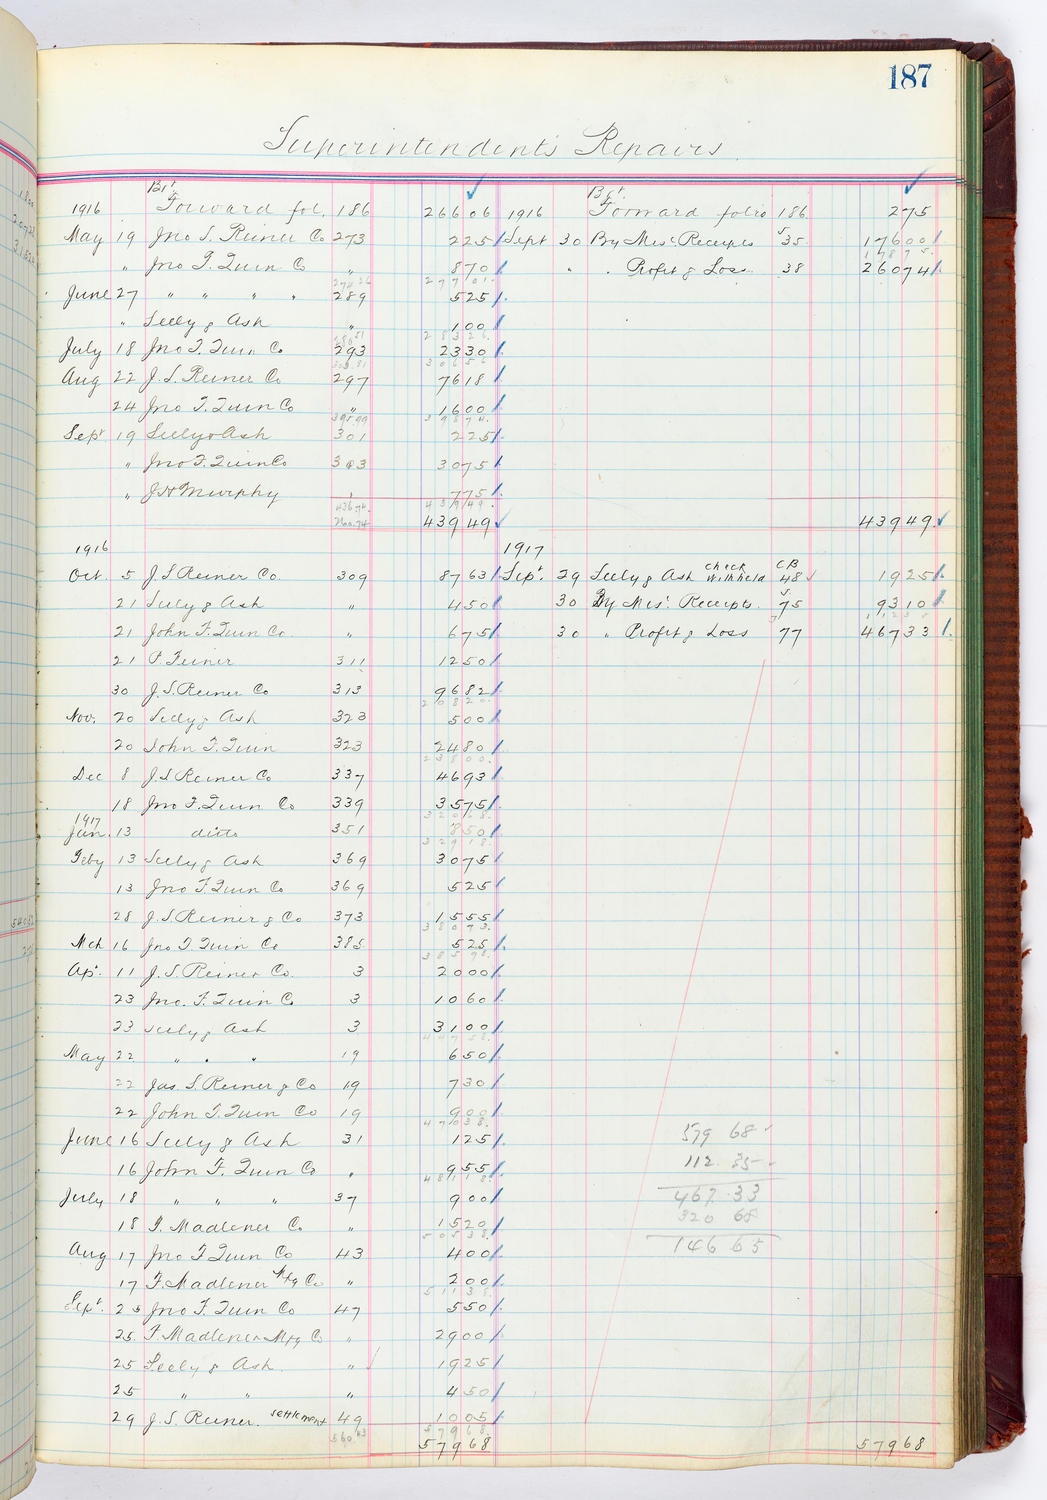 187
Superintendents Repairs
1916 Brt Forward fol. 186 266 06 1916 Brt Forward folio 186 2 75
May 19 Jno S. Reiner Co 273 2 25 Sept 30 By Mis. Receipts 35 176 00
" Jno F. Quin Co " 8 70 " " Profit & Loss 38 260 74
June 27 " " " " 289 5 25
" Seely & Ash " 1 00
July 18 Jno F. Quin Co 293 23 30
Aug 22 J. S. Reiner Co 297 76 18
24 Jno F. Quin Co " 16 00
Sept 19 Seely & Ash 301 2 25
" Jno F. Quin Co 303 30 75
" J H Murphy " 7 75
439 49 439 49
1916 1917
Oct. 5 J. S Reiner Co 309 87 63 Sept. 29 Seely & Ash check withheld CB 48 19 25
21 Seely & Ash " 4 50 30 By Mis. Receipts 75 93 10
21 John F. Quin Co " 6 75 30 " Profit & Loss 77 467 33
21 P. Feiner 311 12 50
30 J. S. Reiner Co 313 96 82
Nov. 20 Seely & Ash 323 5 00
20 John F. Quin 323 24 80
Dec 8 J. S Reiner Co 337 46 93
18 Jno F. Quin Co 339 35 75
1917
Jan. 13 ditto 351 8 50
Feby 13 Seely & Ash 369 30 75
13 Jno F. Quin Co 369 5 25
28 J. S. Reiner & Co 373 15 55
Mch 16 Jno F. Quin Co 385 5 25
Ap. 11 J. S Reiner Co. 3 20 00
23 Jno. F. Quin Co 3 10 60
23 Seely & Ash 3 31 00
May 22 " " " 19 6 50
22 Jas. S. Reiner & Co 19 7 30
22 John F. Quin Co 19 9 00
June 16 Seely & Ash 31 1 25
579 68
16 John F. Quin Co " 9 55
112 35
July 18 " " " 37 9 00
467 33
18 F. Madlener Co " 15 20
320 68
Aug 17 Jno F Quin Co 43 4 00
146 65
17 F. Madlener Mfg Co " 2 00
Sept. 25 Jno F. Quin Co 47 5 50
25 F. Madlener Mfg Co " 29 00
25 Seely & Ash " 19 25
25 " " " 4 50
29 J. S. Reiner. settlement 49 10 05
579 68 579 68